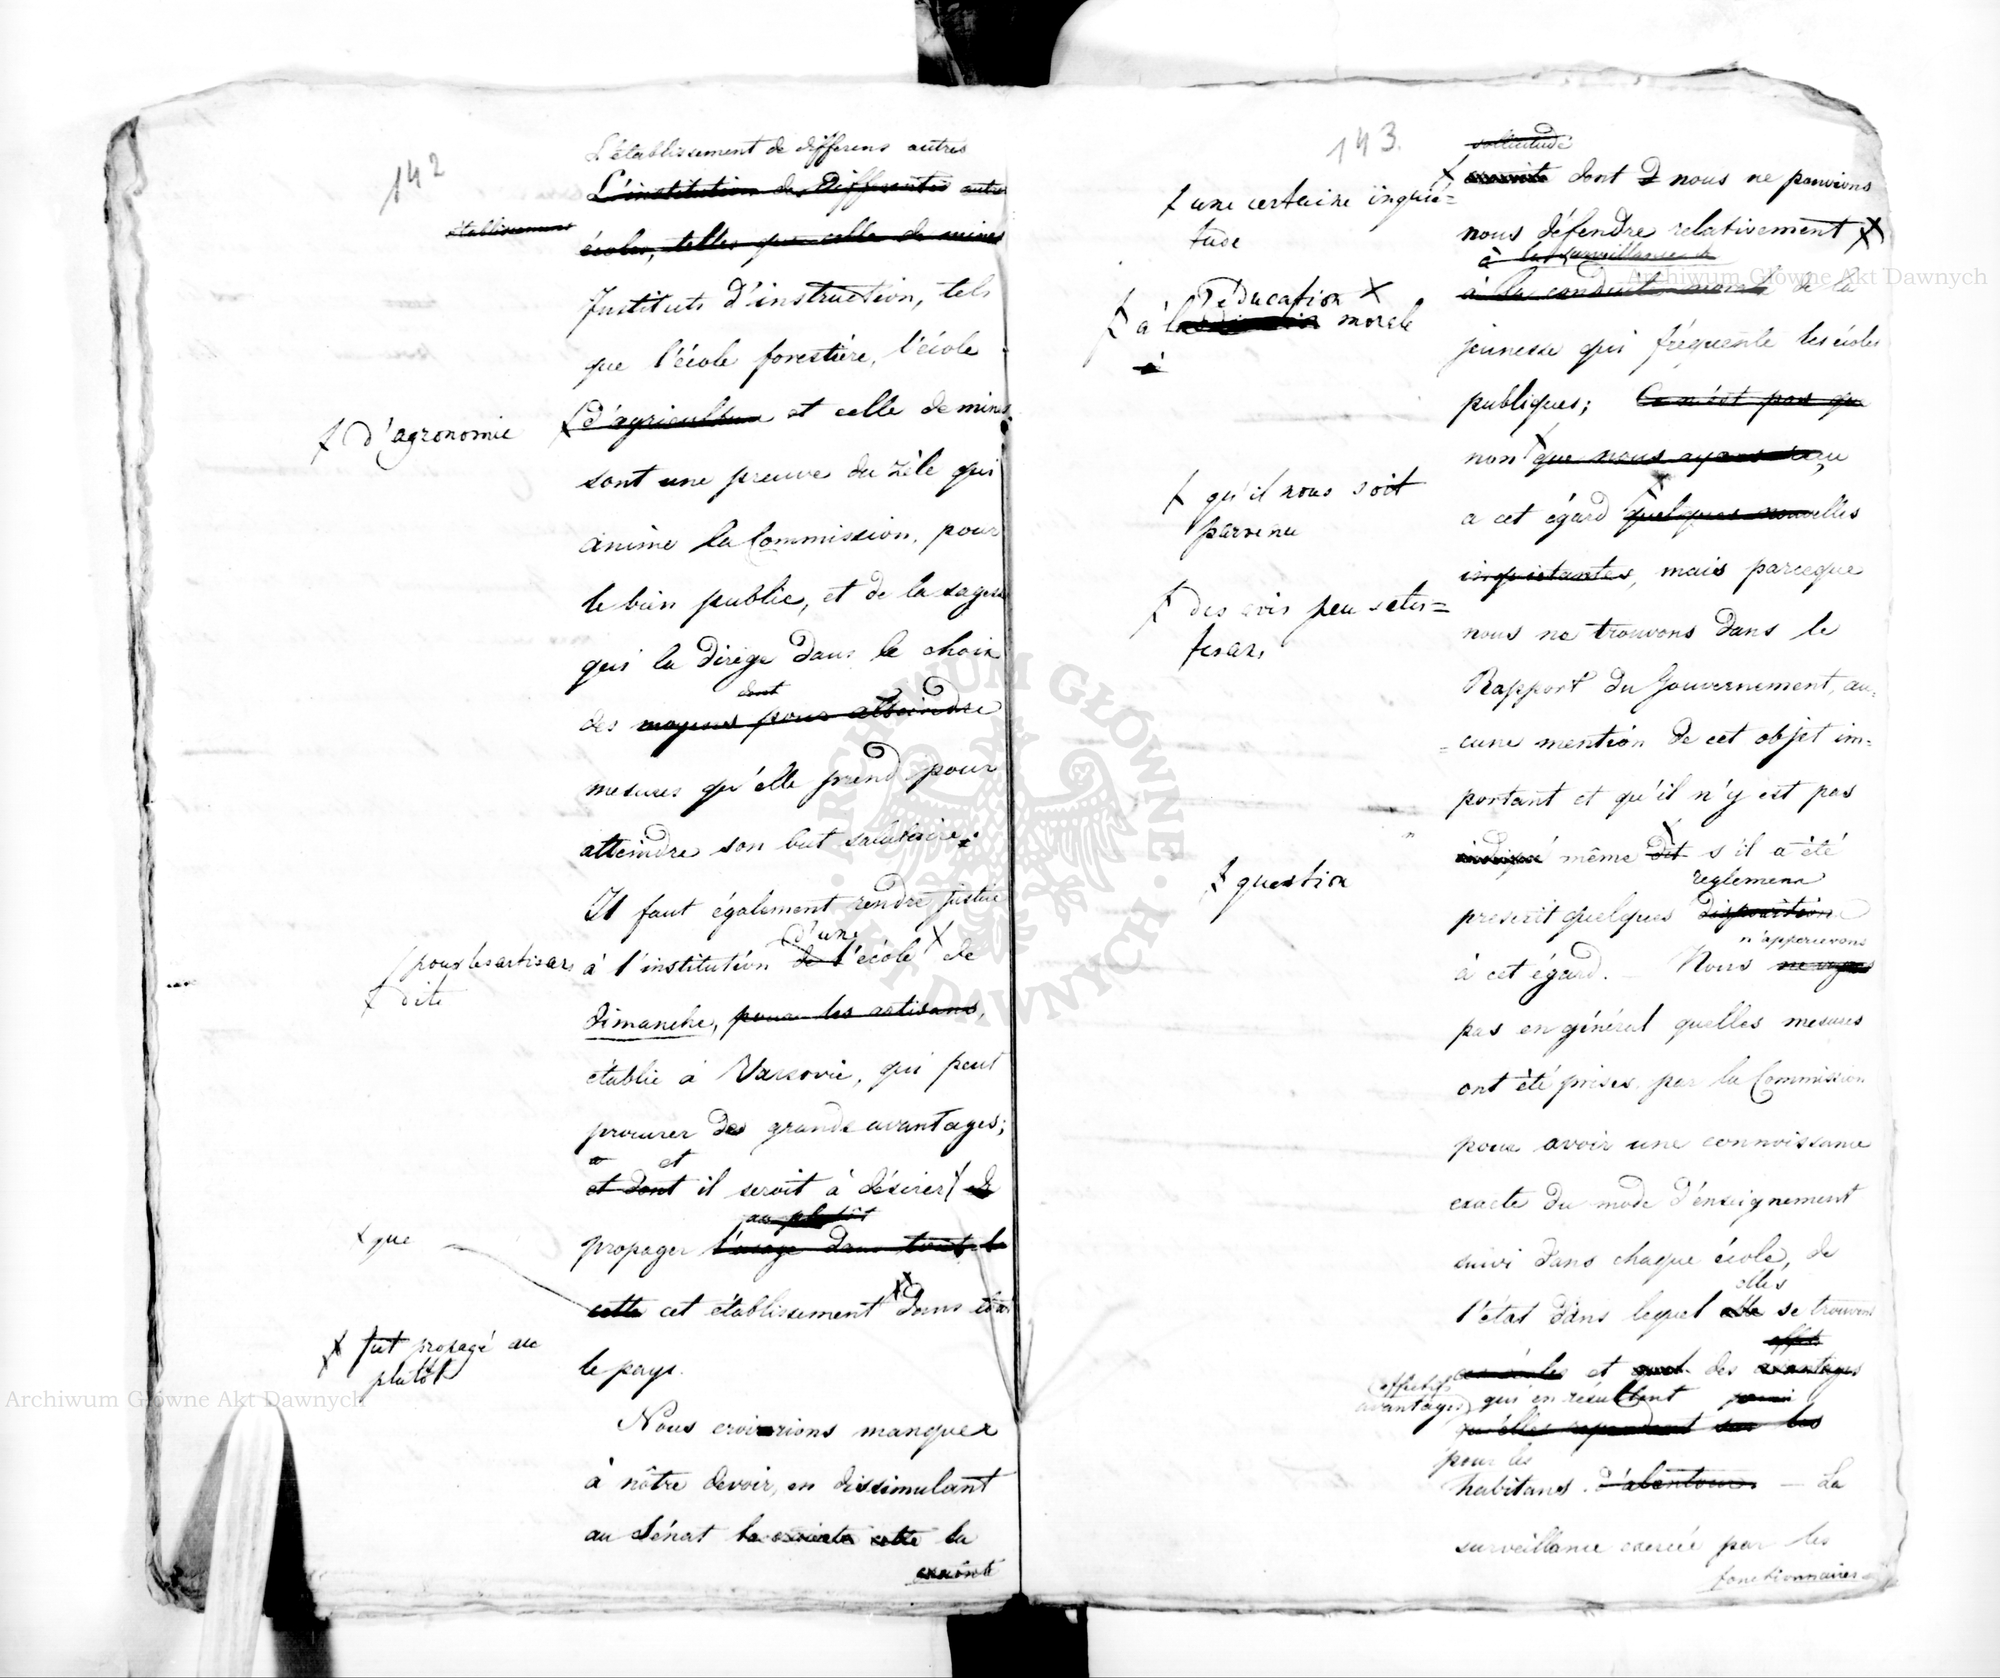 142
L'établissement de differens autres
L'institution des differentes autres
établissemens
écoles, telles que celle de mines
Instituts d'instruction, tels
que l'école forestière, l'école
d'agriculture et celle de mines
ꝉ d'agronomie
sont une preuve du zèle qui
anime la Commission, pour
le bien public, et de la sagesse
qui la dirige dans le choix
dont
des moyens pour atteindre
mesures qu'elle prend pour
atteindre son but salutaire.
Il faut également rendre justice
d'une
à l'institution de l'école de
pour les artisans
dite
Dimanche, pour les artisans,
établie à Varsovie, qui peut
procurer des grands avantages;
et
et dont il seroit à désirer de
au plutôt
propager l'usage dans tout le
que
cette cet établissement dans tout
fut propagé au
plutôt
le pays.
Nous croirions manquer
à nôtre devoir, en dissimulant
au Sénat la crainte cette la
crainte
143.
sollicitude
crainte dont nous ne pouvions
une certaine inquié=
tude
nous défendre relativement
à la surveillance de
à la conduite morale de la
l'éducation
à la morale
à
jeunesse qui fréquente les écoles
publiques; Ce n'est pas que
non que nous ayons reçu
qu'il nous soit
parvenu
a cet égard quelques nouvelles
inquietantes, mais parceque
des avis peu satis=
fesans
nous ne trouvons dans le
Rapport du Gouvernement, au=
=cune mention de cet objet im=
portant et qu'il n'y est pas
indiqué même dit s'il a été
question
reglemens
prescrit quelques disposition
n'appercevons
à cet égard. — Nous ne voyons
pas en général quelles mesures
ont été prises par la Commission
pour avoir une connoissance
exacte du mode d'enseignement
suivi dans chaque école, de
elles
l'état dans lequel elle se trouvent
effets
ces écoles et des avantages
effectifs
avantages qui en résultent
qu'elles repandent sur les
pour les
habitans. d'alentour. — La
surveillance exercée par les
fonctionnaires
Archiwum Główne Akt Dawnych
Archiwum Główne Akt Dawnych
ARCHIWUM GŁÓWNE AKT DAWNYCH